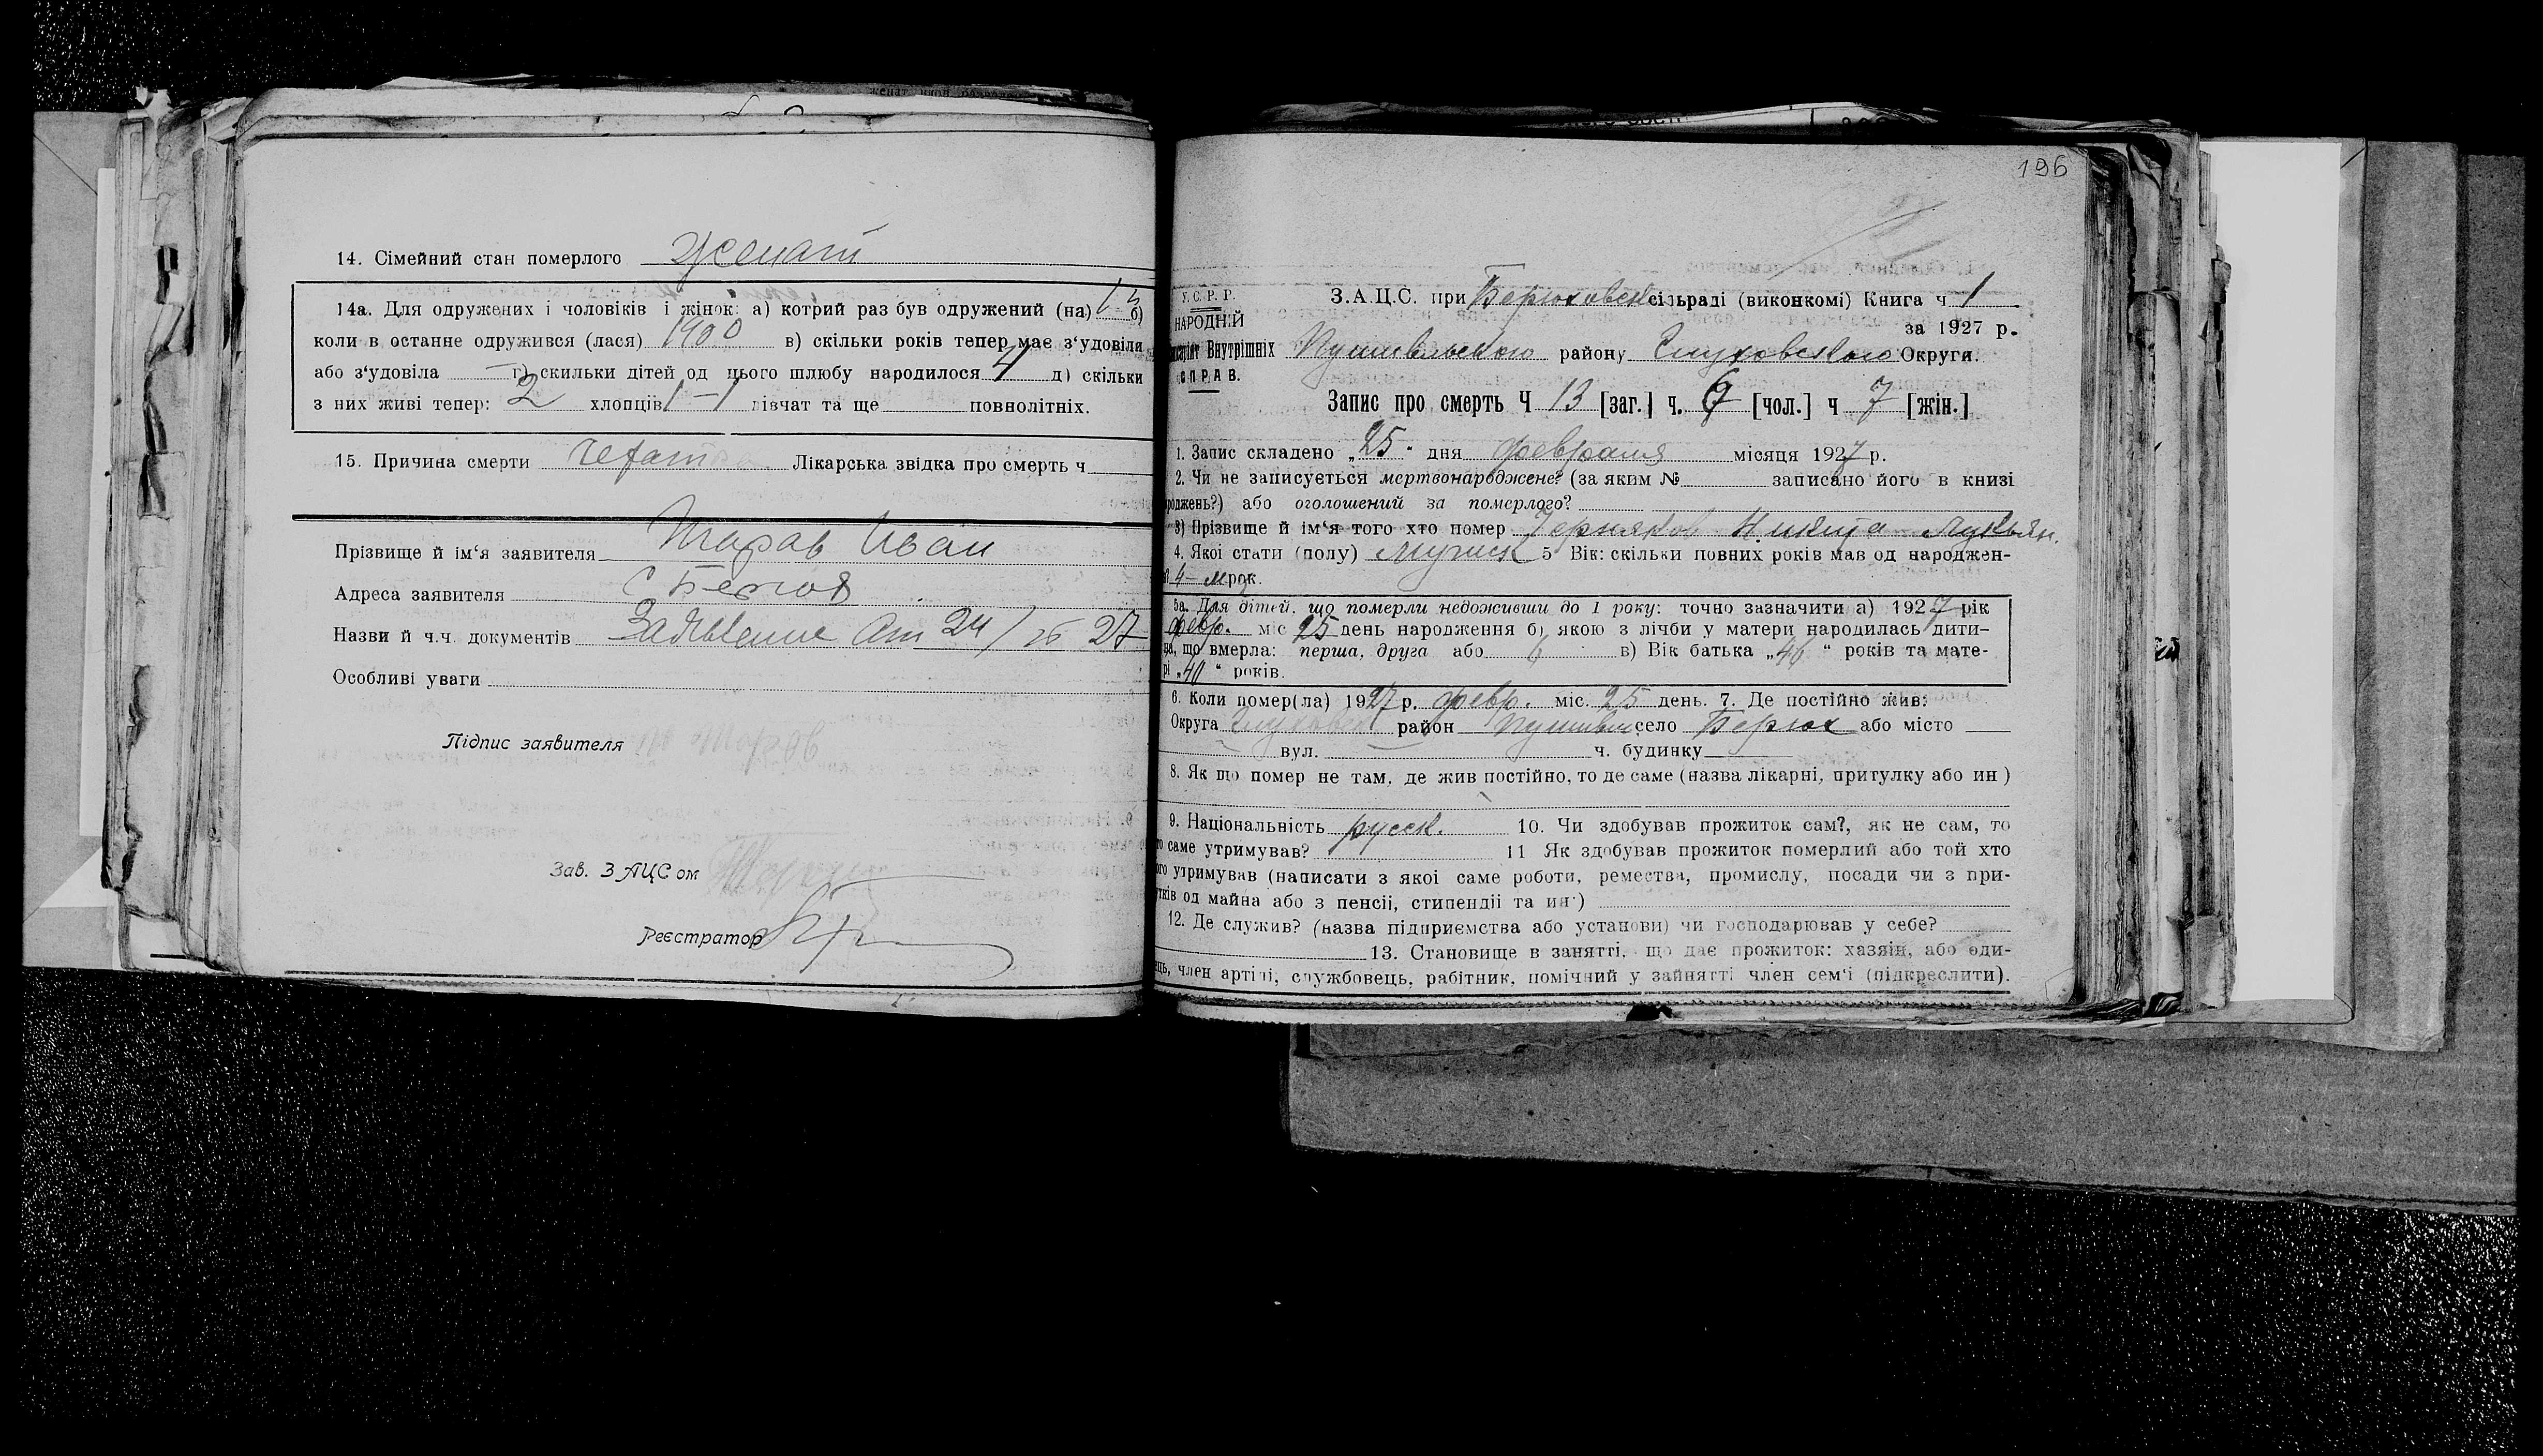 14. Сімейний стан померлого женат
14а. Для одружених і чоловіків і жінок: а) котрий раз був одружений (на) 1 б)
коли в останне одружився (лася) 1900 в) скільки років тепер має з‘удовіла
або з‘удовіла — г) скильки дітей од цього шлюбу народилося 4 д) скільки
з них живі тепер: 2 хлопців 1 — 1 дівчат та ще повнолітніх.
15. Причина смерти Лікарська звідка про смерть ч
Прізвище й ім‘я заявителя Иван
Адреса заявителя С Берюх
Назви й ч.ч. документів Заявление от 24/ 27
Особливі уваги
Підпис заявителя
Зав. ЗАЦСом
Реєстратор
196
У.С.Р.Р.
НАРОДНІЙ
Внутрішніх
СПРАВ.
З.А.Ц.С. при Берюховск сільраді (виконкомі) Книга ч 1
за 1927 р.
Путивльского району Глуховского Округи.
Запис про смерть Ч 13 [заг.] ч. 6 [чол.] ч 7 [жін.]
1. Запис складено „25“ дня февраля місяця 1927 р.
2. Чи не записується мертвонароджене? (за яким № записано його в книзі
роджень?) або оголошений за померлого?
3) Прізвище й ім‘я того хто помер Черняков Никита Лукьян.
4. Якої стати (полу) мужск 5 Вік: скільки повних років мав од народжен-
4 — м рок.
5а. Для дітей, що померли недоживши до 1 року: точно зазначити а) 1927 рік
февр. міс 25 день народження б) якою з лічби у матери народилась дити-
на, що вмерла: перша, друга або 6 в) Вік батька „46“ років та мате-
рі „40“ років.
6. Коли помер(ла) 1927 р. февр. міс. 25 день. 7. Де постійно жив:
Округа Глуховск район Путивл село Берюх або місто
вул. ч. будинку
8. Як що помер не там, де жив постійно, то де саме (назва лікарні, притулку або ин)
9. Національність русск. 10. Чи здобував прожиток сам?, як не сам, то
саме утримував? 11 Як здобував прожиток померлий або той хто
його утримував (написати з якої саме роботи, ремества, промислу, посади чи з при-
утків од майна або з пенсії, стипендії та ин·)
12. Де служив? (назва підприємства або установи) чи господарював у себе?
13. Становище в занятті, що дає прожиток: хазяін, або оди-
ець, член артілі, службовець, рабітник, помічний у зайнятті член сем‘і (підкреслити).